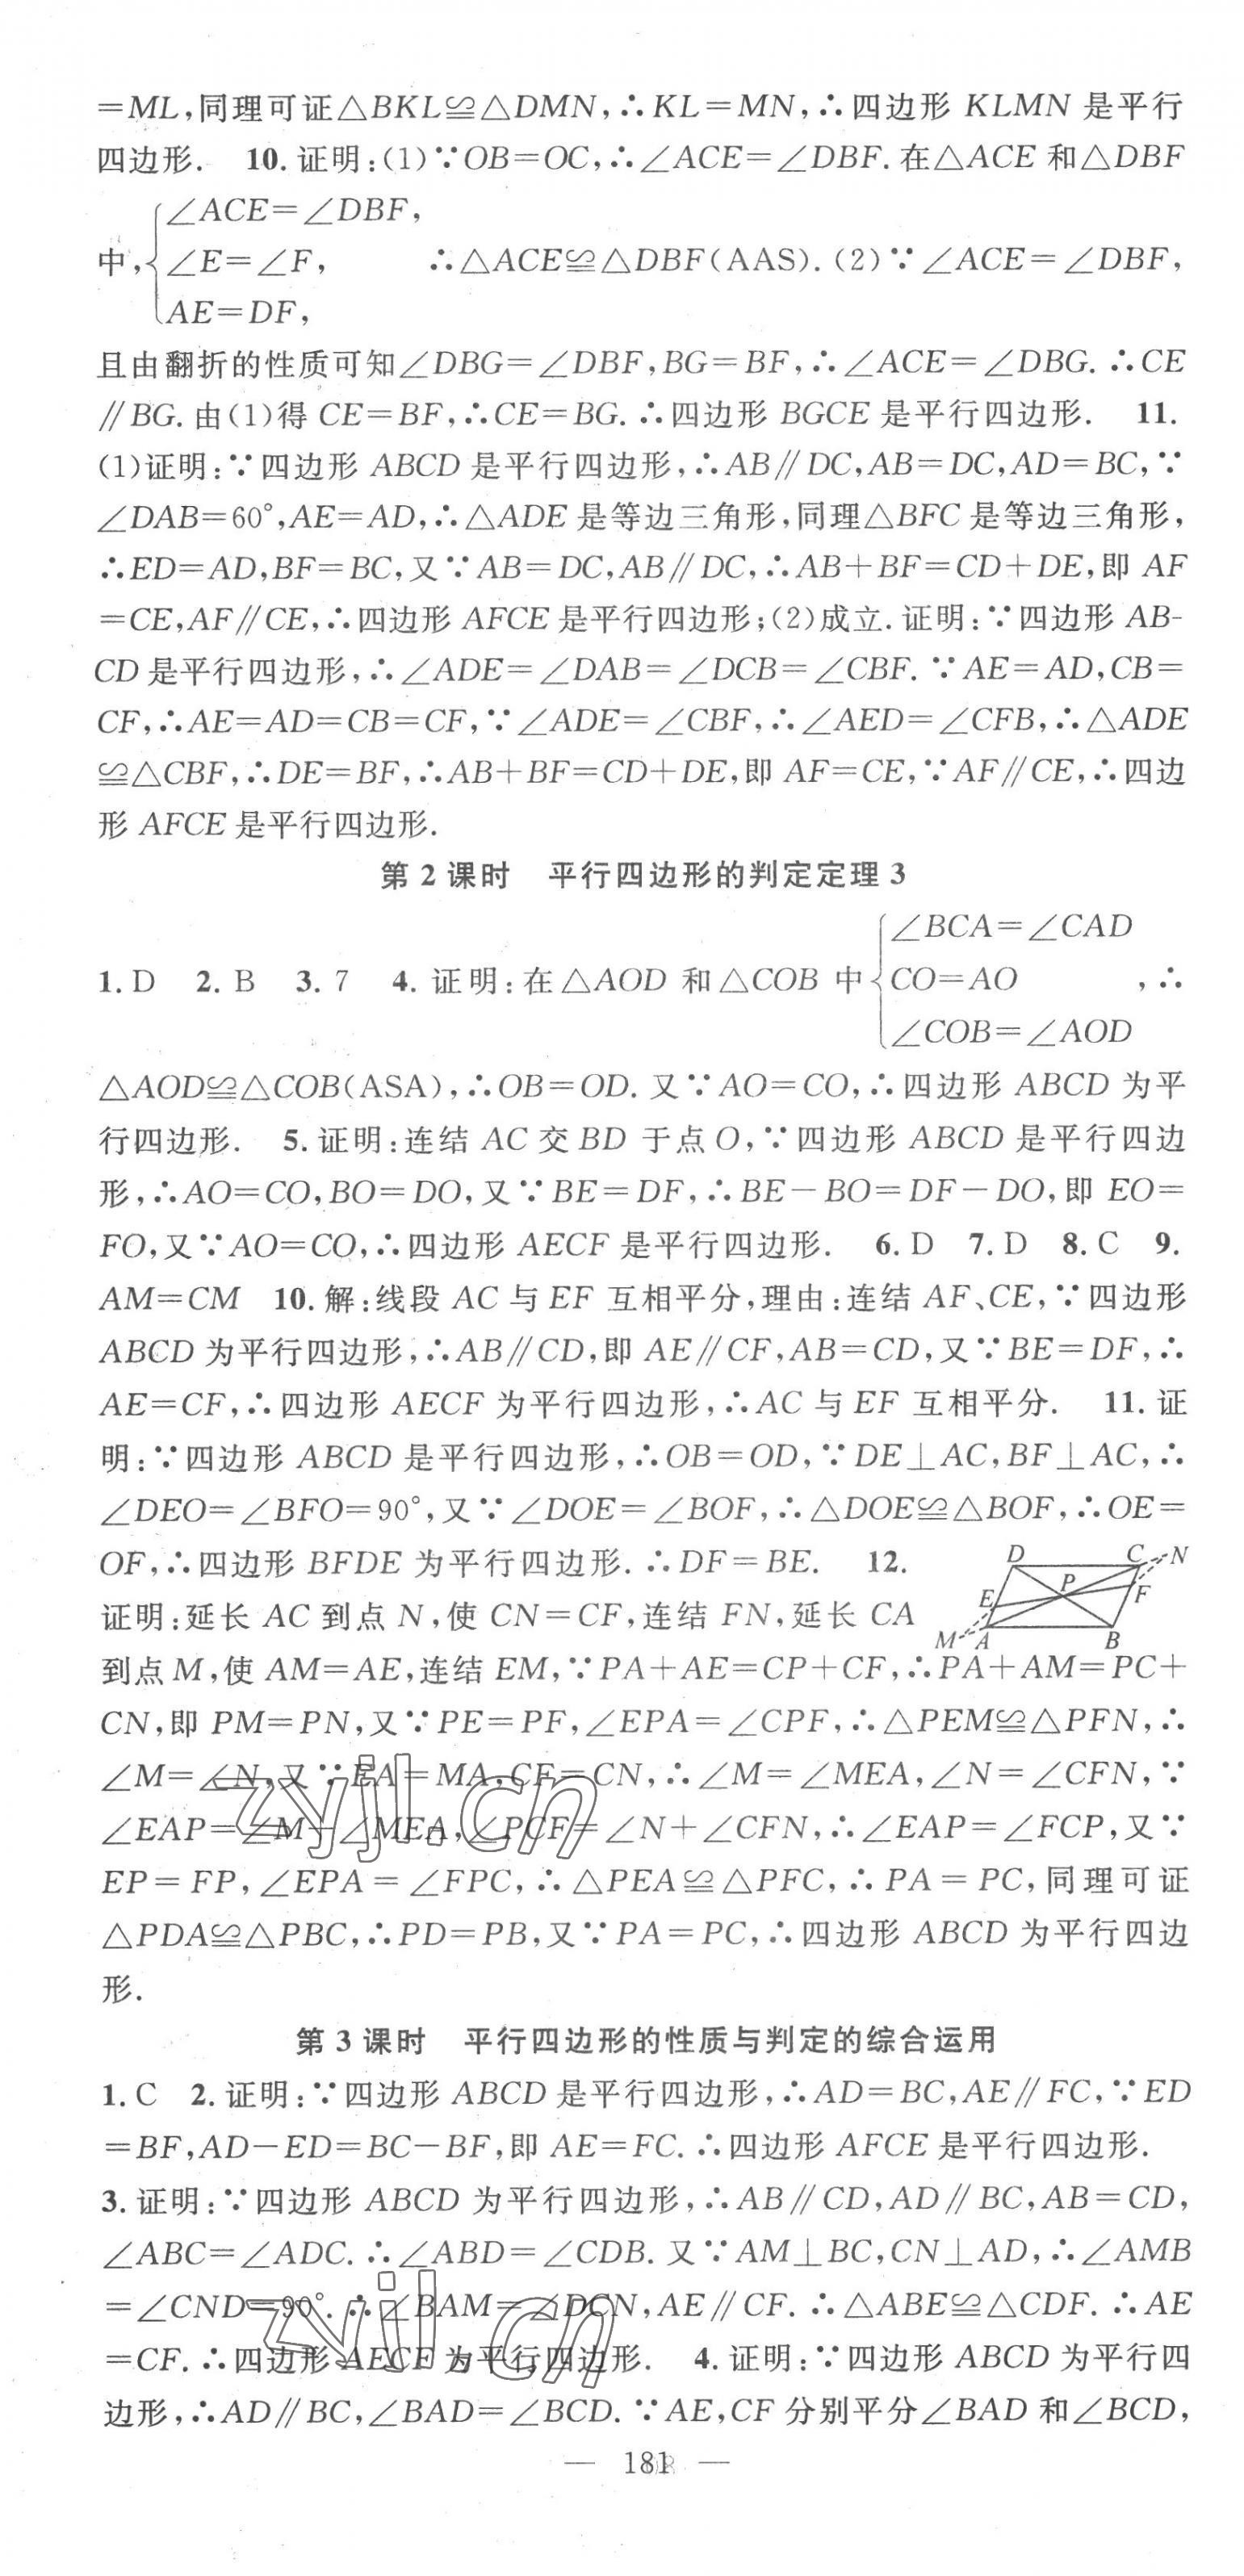 =ML,同理可证△BKL≌△DMN,∴KL=MN,∴四边形 KLMN 是平行
四边形. 10.证明:(1)∵OB=OC,∴∠ACE=∠DBF.在△ACE 和△DBF
∠ACE=∠DBF,
中,{∠E=∠F, ∴△ACE≌△DBF(AAS).(2)∵∠ACE=∠DBF,
AE=DF,
且由翻折的性质可知∠DBG=∠DBF,BG=BF,∴∠ACE=∠DBG.∴CE
∥BG.由(1)得 CE=BF,∴CE=BG.∴四边形 BGCE 是平行四边形. 11.
(1)证明:∵四边形 ABCD 是平行四边形,∴AB∥DC,AB=DC,AD=BC,∵
∠DAB=60°,AE=AD,∴△ADE 是等边三角形,同理△BFC 是等边三角形,
∴ED=AD,BF=BC,又∵AB=DC,AB∥DC,∴AB+BF=CD+DE,即 AF
=CE,AF∥CE,∴四边形 AFCE 是平行四边形;(2)成立.证明:∵四边形 AB-
CD 是平行四边形,∴∠ADE=∠DAB=∠DCB=∠CBF.∵AE=AD,CB=
CF,∴AE=AD=CB=CF,∵∠ADE=∠CBF,∴∠AED=∠CFB,∴△ADE
≌△CBF,∴DE=BF,∴AB+BF=CD+DE,即 AF=CE,∵AF∥CE,∴四边
形 AFCE 是平行四边形.
第 2 课时 平行四边形的判定定理 3
∠BCA=∠CAD
1.D 2.B 3.7 4.证明:在△AOD 和△COB 中{CO=AO ,∴
∠COB=∠AOD
△AOD≌△COB(ASA),∴OB=OD.又∵AO=CO,∴四边形 ABCD 为平
行四边形. 5.证明:连结 AC 交 BD 于点 O,∵四边形 ABCD 是平行四边
形,∴AO=CO,BO=DO,又∵BE=DF,∴BE-BO=DF-DO,即 EO=
FO,又∵AO=CO,∴四边形 AECF 是平行四边形. 6.D 7.D 8.C 9.
AM=CM 10.解:线段 AC 与 EF 互相平分,理由:连结 AF、CE,∵四边形
ABCD 为平行四边形,∴AB∥CD,即 AE∥CF,AB=CD,又∵BE=DF,∴
AE=CF,∴四边形 AECF 为平行四边形,∴AC 与 EF 互相平分. 11.证
明:∵四边形 ABCD 是平行四边形,∴OB=OD,∵DE⊥AC,BF⊥AC,∴
∠DEO=∠BFO=90°,又∵∠DOE=∠BOF,∴△DOE≌△BOF,∴OE=
OF,∴四边形 BFDE 为平行四边形.∴DF=BE. 12.
D C N
P
E F
M A B
证明:延长 AC 到点 N,使 CN=CF,连结 FN,延长 CA
到点 M,使 AM=AE,连结 EM,∵PA+AE=CP+CF,∴PA+AM=PC+
CN,即 PM=PN,又∵PE=PF,∠EPA=∠CPF,∴△PEM≌△PFN,∴
∠M=∠N,又∵EA=MA,CF=CN,∴∠M=∠MEA,∠N=∠CFN,∵
∠EAP=∠M+∠MEA,∠PCF=∠N+∠CFN,∴∠EAP=∠FCP,又∵
EP=FP,∠EPA=∠FPC,∴△PEA≌△PFC,∴PA=PC,同理可证
△PDA≌△PBC,∴PD=PB,又∵PA=PC,∴四边形 ABCD 为平行四边
形.
zyjl.cn
第 3 课时 平行四边形的性质与判定的综合运用
1.C 2.证明:∵四边形 ABCD 是平行四边形,∴AD=BC,AE∥FC,∵ED
=BF,AD-ED=BC-BF,即 AE=FC.∴四边形 AFCE 是平行四边形.
3.证明:∵四边形 ABCD 为平行四边形,∴AB∥CD,AD∥BC,AB=CD,
∠ABC=∠ADC.∴∠ABD=∠CDB.又∵AM⊥BC,CN⊥AD,∴∠AMB
=∠CND=90°.∴∠BAM=∠DCN,AE∥CF.∴△ABE≌△CDF.∴AE
=CF.∴四边形 AECF 为平行四边形. 4.证明:∵四边形 ABCD 为平行四
边形,∴AD∥BC,∠BAD=∠BCD.∵AE,CF 分别平分∠BAD 和∠BCD,
zyjl.cn
— 181 —